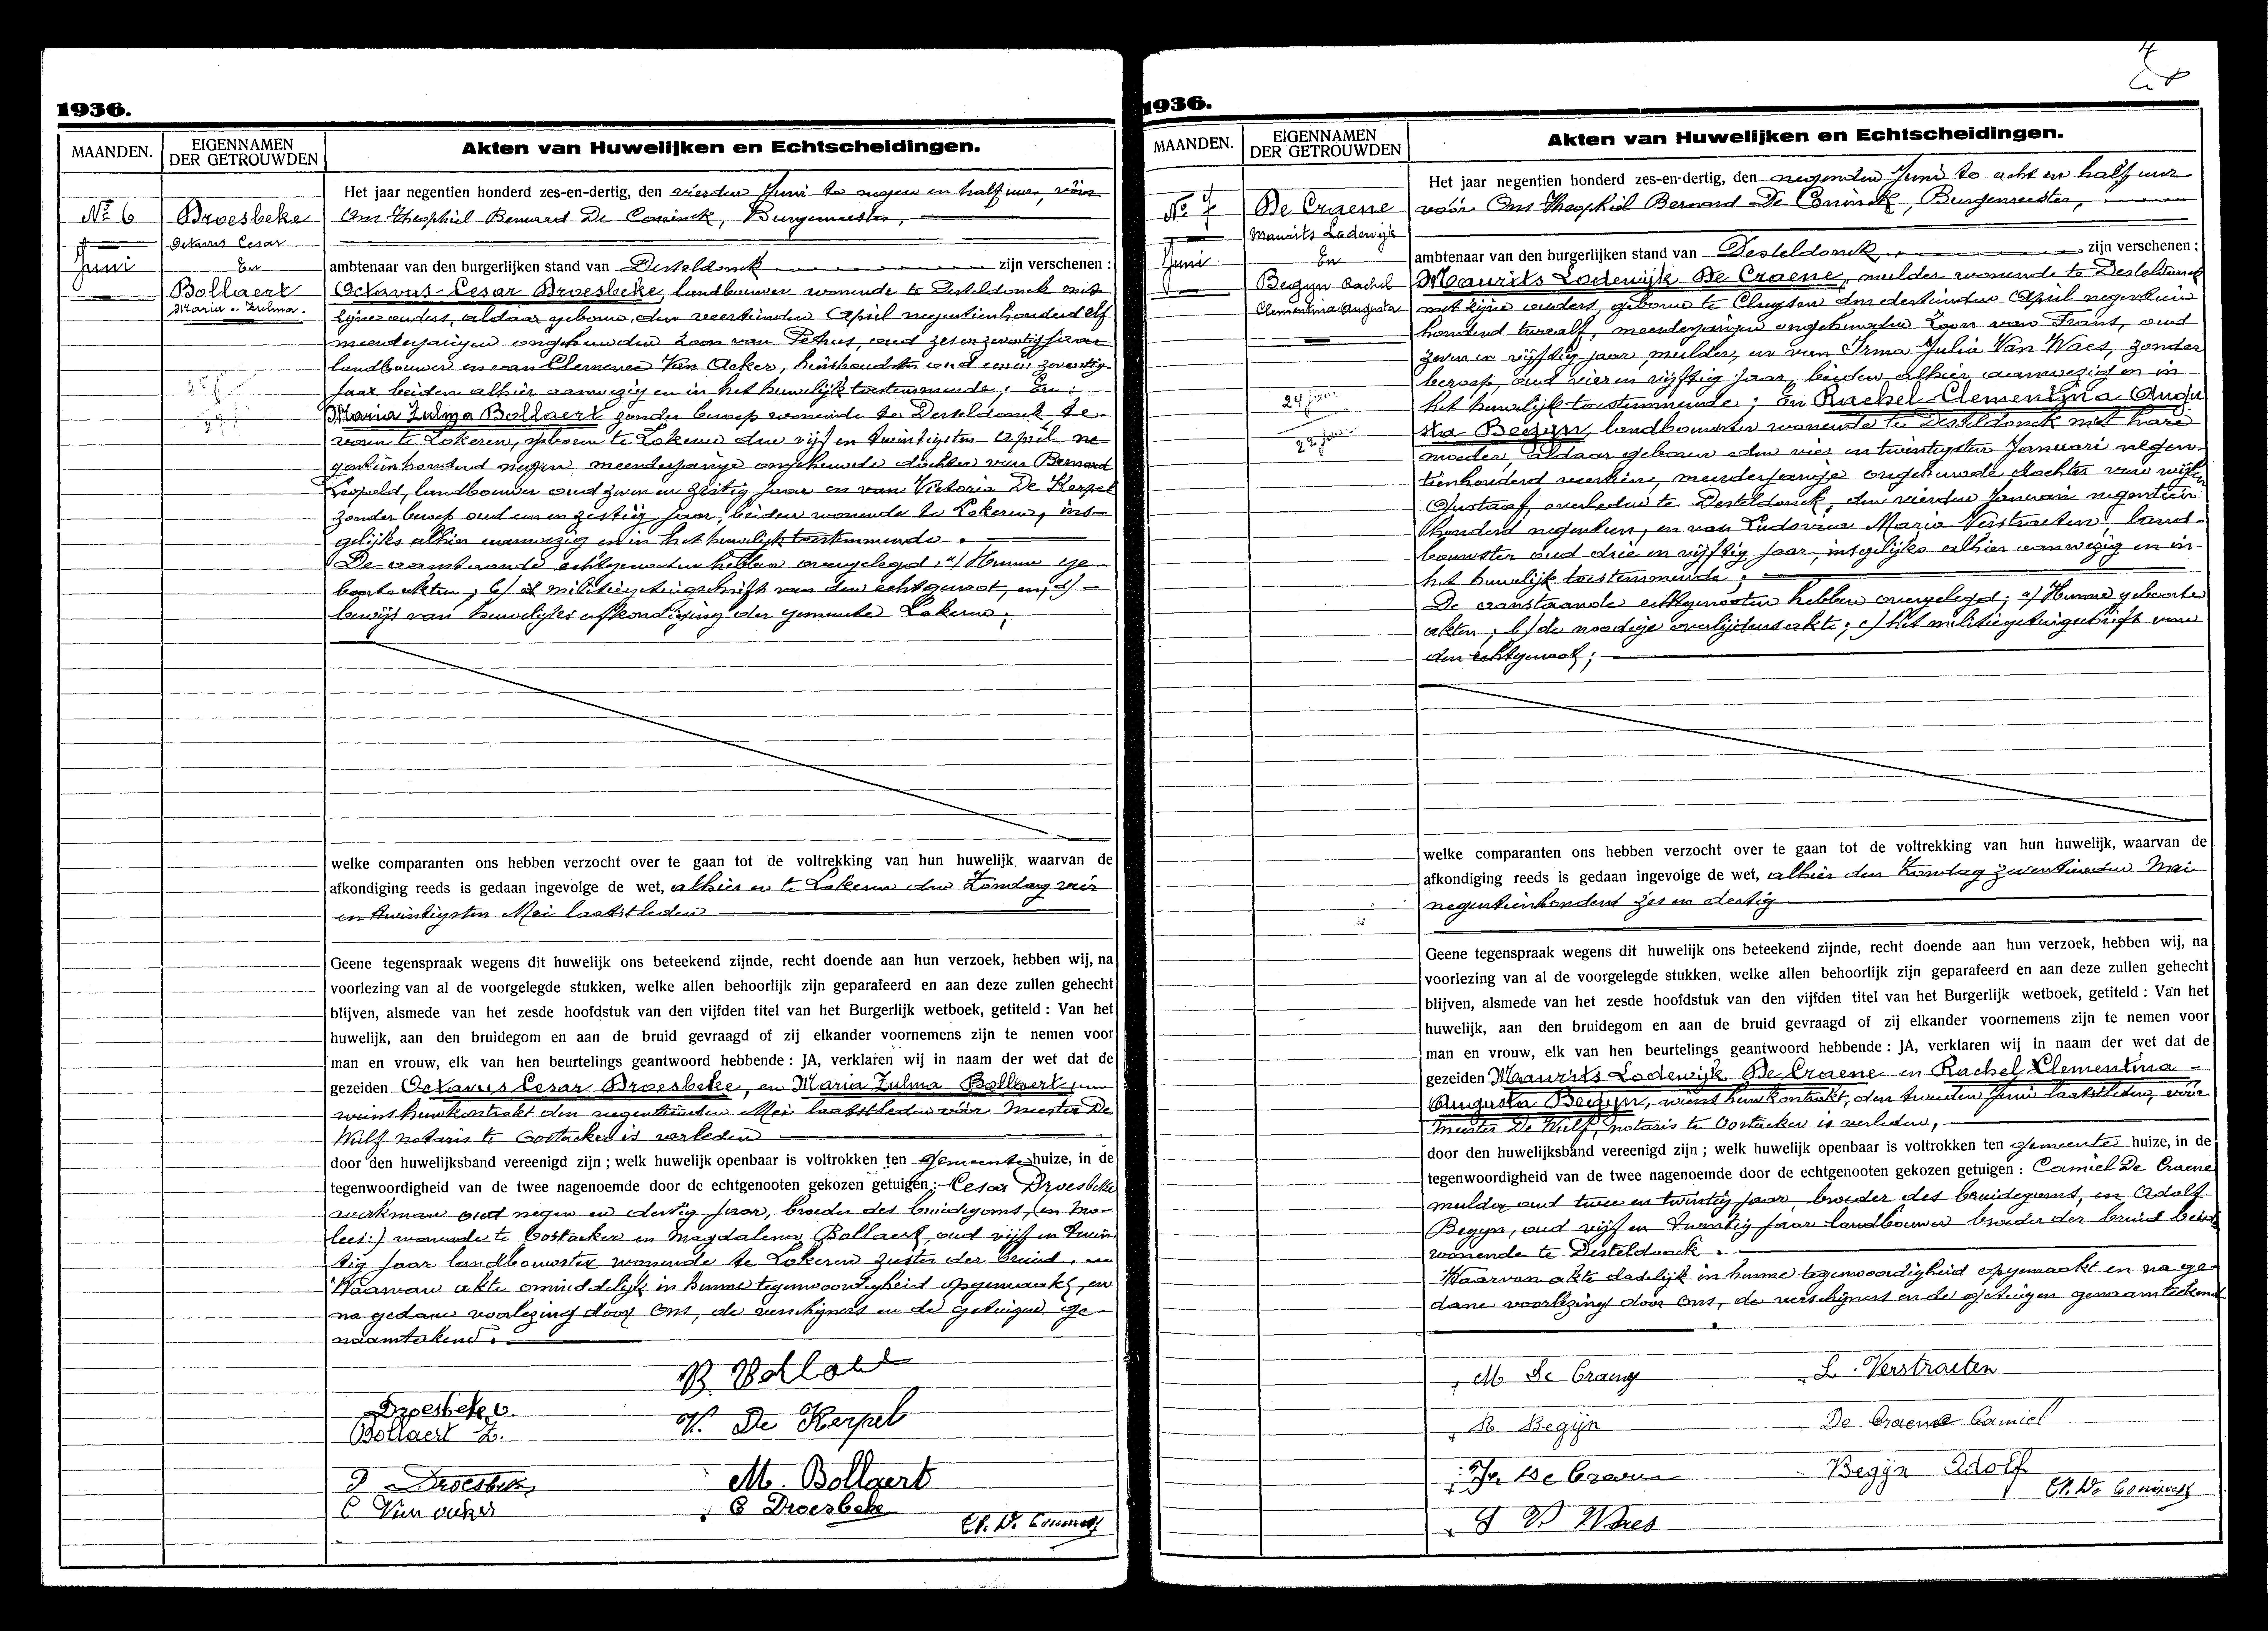 1936.
MAANDEN.
EIGENNAMEN
DER GETROUWDEN
Akten van Huwelijken en Echtscheidingen.
No 6
Juni
Droesbeke
Octavus Cesar
En
Bollaert
Maria-Zulma.
Het jaar negentien honderd zes-en-dertig, den vierden Juni te negen en half ure, vóór
Ons Theophiel Bernard De Coninck, Burgemeester,
ambtenaar van den burgerlijken stand van Desteldonck zijn verschenen :
Octavus-Cesar Droesbeke, landbouwer wonende te Desteldonck met
zijne ouders, aldaar geboren, den veertienden April negentienhonderd elf
meerderjarigen ongehuwden zoon van Petrus, oud zes en zeventig jaar
landbouwer en van Clemence Van Acker, huishoudster oud een en zeventig
jaar beiden alhier aanwezig en in het huwelijk toestemmende; En:
Maria Zulma Bollaert zonder beroep wonende te Desteldonck te
voren te Lokeren, geboren te Lokeren den vijf en twintigsten April ne-
gentienhonderd negen meerderjarige ongehuwde dochter van Bernard
Leopold, landbouwer oud zeven en zestig jaar en van Victoria De Kerpel
zonder beroep oud een en zestig jaar, beiden wonende te Lokeren, ins-
gelijks alhier aanwezig en in het huwelijk toestemmende.
De aanstaande echtgenooten hebben overgelegd: a/ Hunne ge-
boorteakten; b/ militiegetuigschrift van den echtgenoot, en, c/-
bewijs van huwelijksafkondiging der gemeente Lokeren;
welke comparanten ons hebben verzocht over te gaan tot de voltrekking van hun huwelijk, waarvan de
afkondiging reeds is gedaan ingevolge de wet, alhier en te Lokeren den Zondag vier
en twintigsten Mei laatstleden
Geene tegenspraak wegens dit huwelijk ons beteekend zijnde, recht doende aan hun verzoek, hebben wij, na
voorlezing van al de voorgelegde stukken, welke allen behoorlijk zijn geparafeerd en aan deze zullen gehecht
blijven, alsmede van het zesde hoofdstuk van den vijfden titel van het Burgerlijk wetboek, getiteld : Van het
huwelijk, aan den bruidegom en aan de bruid gevraagd of zij elkander voornemens zijn te nemen voor
man en vrouw, elk van hen beurtelings geantwoord hebbende : JA, verklaren wij in naam der wet dat de
gezeiden Octavus Cesar Droesbeke, en Maria Zulma Bollaert,
wiens huwkontrakt den negentienden Mei laatstleden vóór Meester De
Wulf notaris te Oostacker is verleden
door den huwelijksband vereenigd zijn ; welk huwelijk openbaar is voltrokken ten Gemeente huize, in de
tegenwoordigheid van de twee nagenoemde door de echtgenooten gekozen getuigen : Cesar Droesbeke
werkman oud negen en dertig jaar, broeder des bruidegoms,
lees:) wonende te Oostacker en Magdalena Bollaert, oud vijf en twin
tig jaar landbouwster wonende te Lokeren zuster der bruid.
Waarvan akte onmiddelijk in hunne tegenwoordigheid opgemaakt, en
na gedane voorlezing door Ons, de verschijners en de getuigen ge-
naamtekend.
B. Bollaert
Droesbeke O.
Bollaert Z.
V. De Kerpel
P Droesbeke
M. Bollaert
C Van acker
C Droesbeke
Th. De Coninck
1936.
MAANDEN.
EIGENNAMEN
DER GETROUWDEN
Akten van Huwelijken en Echtscheidingen.
No 7
Juni
De Craene
Maurits Lodewijk
En
Begyn Rachel
Clementina Augusta
24 jaar
22 jaar
Het jaar negentien honderd zes-en-dertig, den negenden Juni te acht en half ure
vóór Ons Theophiel Bernard De Coninck, Burgemeester,
ambtenaar van den burgerlijken stand van Desteldonck zijn verschenen :
Maurits Lodewijk De Craene, mulder wonende te Desteldonck
met zijne ouders, geboren te Cluysen den dertienden April negentien
honderd twaalf, meerderjarigen ongehuwden Zoon van Frans, oud
zeven en vijftig jaar, mulder, en van Irma Julia Van Waes, zonder
beroep, oud vier en vijftig jaar, beiden alhier aanwezig en in
het huwelijk toestemmende; En Rachel Clementina Augu
sta Begyn, landbouwster wonende te Desteldonck met hare
moeder, aldaar geboren den vier en twintigsten Januari negen-
tienhonderd veertien, meerderjarige ongehuwde dochter van wijlen
Gustaaf, overleden te Desteldonck, den vierden Januari negentien
honderd negentien, en van Ludovica Maria Verstraeten, land-
bouwster oud drie en vijftig jaar, insgelijks alhier aanwezig en in
het huwelijk toestemmende;
De aanstaande echtgenooten hebben overgelegd; a/ Hunne geboorte
akten; b/ de noodige overlijdensakte; c/ het militiegetuigschrift van
den echtgenoot;
welke comparanten ons hebben verzocht over te gaan tot de voltrekking van hun huwelijk, waarvan de
afkondiging reeds is gedaan ingevolge de wet, alhier den Zondag zeventienden Mei
negentienhonderd zes en dertig
Geene tegenspraak wegens dit huwelijk ons beteekend zijnde, recht doende aan hun verzoek, hebben wij, na
voorlezing van al de voorgelegde stukken, welke allen behoorlijk zijn geparafeerd en aan deze zullen gehecht
blijven, alsmede van het zesde hoofdstuk van den vijfden titel van het Burgerlijk wetboek, getiteld : Van het
huwelijk, aan den bruidegom en aan de bruid gevraagd of zij elkander voornemens zijn te nemen voor
man en vrouw, elk van hen beurtelings geantwoord hebbende : JA, verklaren wij in naam der wet dat de
gezeiden Maurits Lodewijk De Craene en Rachel Clementina -
Augusta Begyn, wiens huwkontrakt, den tweeden Juni laatstleden, vóór
Meester De Wulf, notaris te Oostacker is verleden,
door den huwelijksband vereenigd zijn ; welk huwelijk openbaar is voltrokken ten gemeente huize, in de
tegenwoordigheid van de twee nagenoemde door de echtgenooten gekozen getuigen : Camiel De Craene
mulder oud twee en twintig jaar, broeder des bruidegoms, en Adolf
Begyn, oud vijf en twintig jaar landbouwer broeder der bruid beide
wonende te Desteldonck.
Waarvan akte dadelijk in hunne tegenwoordigheid opgemaakt en na ge-
dane voorlezing door Ons, de verschijners en de getuigen genaamteekend
M De Craene
L. Verstraeten
R Begijn
De Craene Camiel
Fr. De Craene
Begijn Adolf
Th. De Coninck
J V Waes